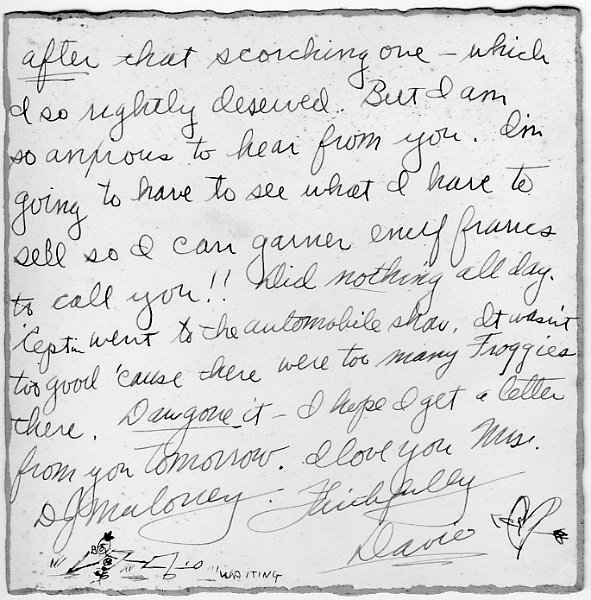 after that scorching one – which
I so rightly deserved. But I am
so anxious to hear from you. I'm
going to have to see what I have to
sell so I can garner enuf francs
to call you!! Did nothing all day.
'Ceptin went to the automobile show. It wasn't
too good 'cause there were too many Froggies
there. Dawgone it – I hope I get a letter
from you tomorrow. I love you Mrs.
D J Maloney. Faithfully
Davie
"WAITING